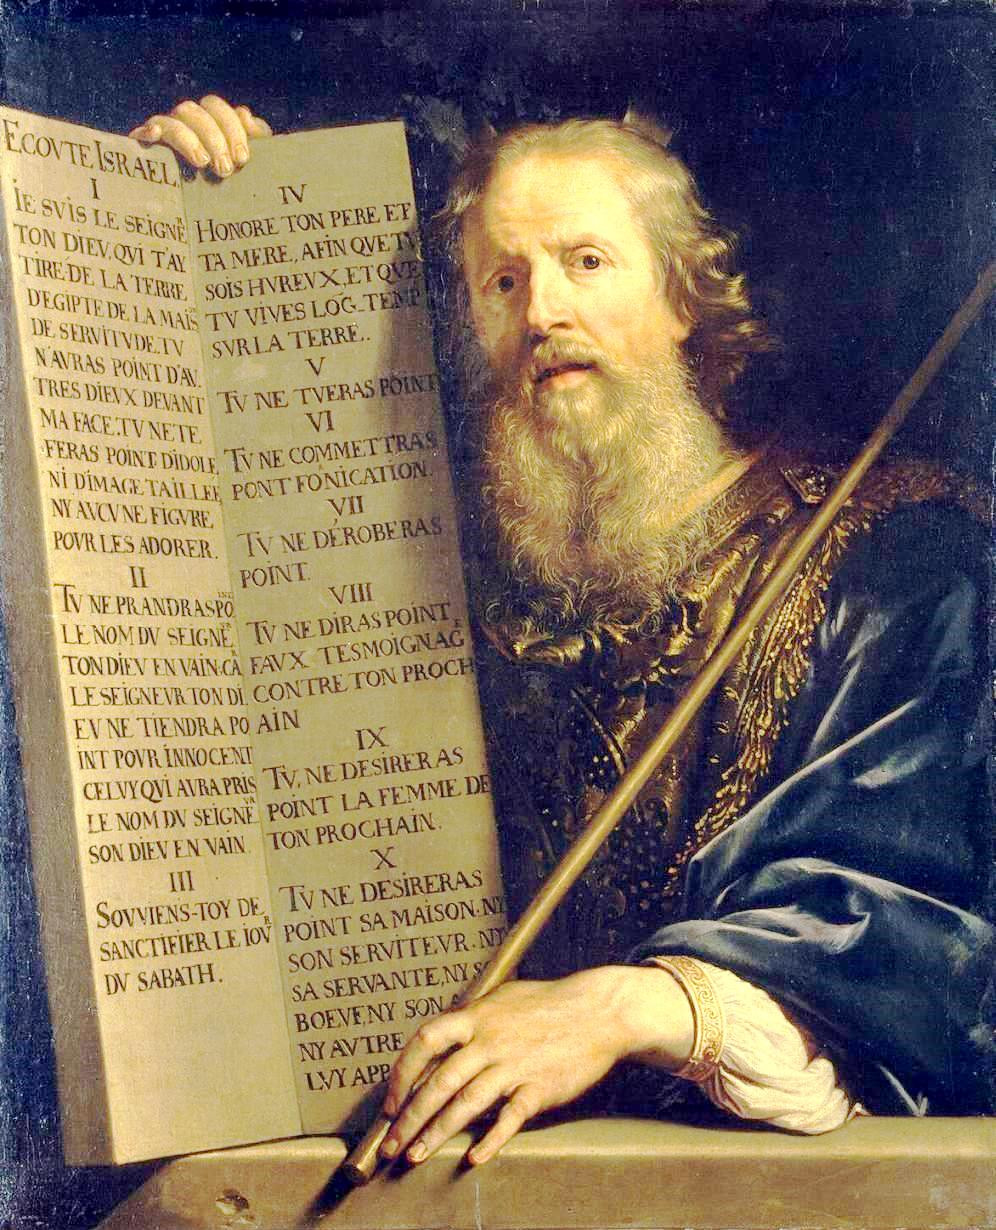 ECOVTE ISRAEL.
I
IE SVIS LE SEIGNR
TON DIEV, QVI T'AY
TIRE. DE LA TERRE
D'EGIPTE DE LA MAIS
DE SERVITVDE. TV
N'AVRAS POINT D'AV.
TRES DIEVX DEVANT
MA FACE. TV NE TE
FERAS POINT DIDOLE
NI DIMAGE TAILLEE
NY AVCVNE FIGVRE
POVR LES ADORER.
II
TV NE PRANDRAS PO
LE NOM DV SEIGNR
TON DIEV EN VAIN. CAR
LE SEIGNEVR TON DI
EV NE TIENDRA PO
INT POVR INNOCENT
CELVY QVI AVRA PRIS
LE NOM DV SEIGNE
SON DIEV EN VAIN.
III
SOVVIENS-TOY DE
SANCTIFIER LE IOVR
DV SABATH.
IV
HONORE TON PERE ET
TA MERE, AFIN QVE TV
SOIS HVREVX, ET QVE
TV VIVES LOG-TEMP
SVR LA TERRE..
V
TV NE TVERAS POINT
VI
TV NE COMMETTRAS
PONT FONICATION.
VII
TV NE DÉROBERAS
POINT.
VIII
TV NE DIRAS POINT
FAVX TESMOIGNAGE
CONTRE TON PROCH
AIN
IX
TV, NE DESIRERAS
POINT LA FEMME DE
TON PROCHAIN.
X
TV NE DESIRERAS
POINT SA MAISON. NY
SON SERVITEVR. NY
SA SERVANTE, NY S
BOEVF, NY SON A
NY AVTRE
LVY APP